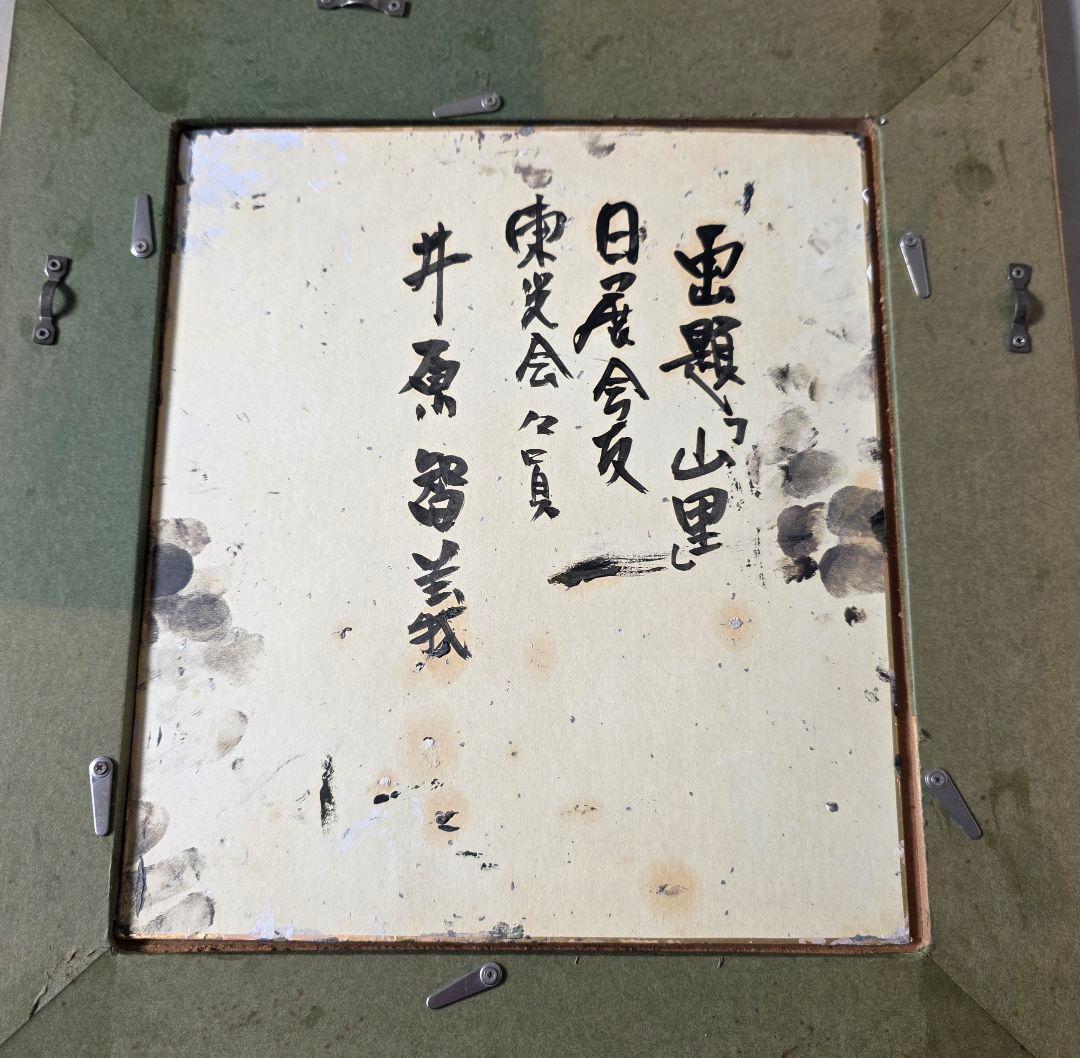 画題「山里」
日展会友
東光会々員
井原智義